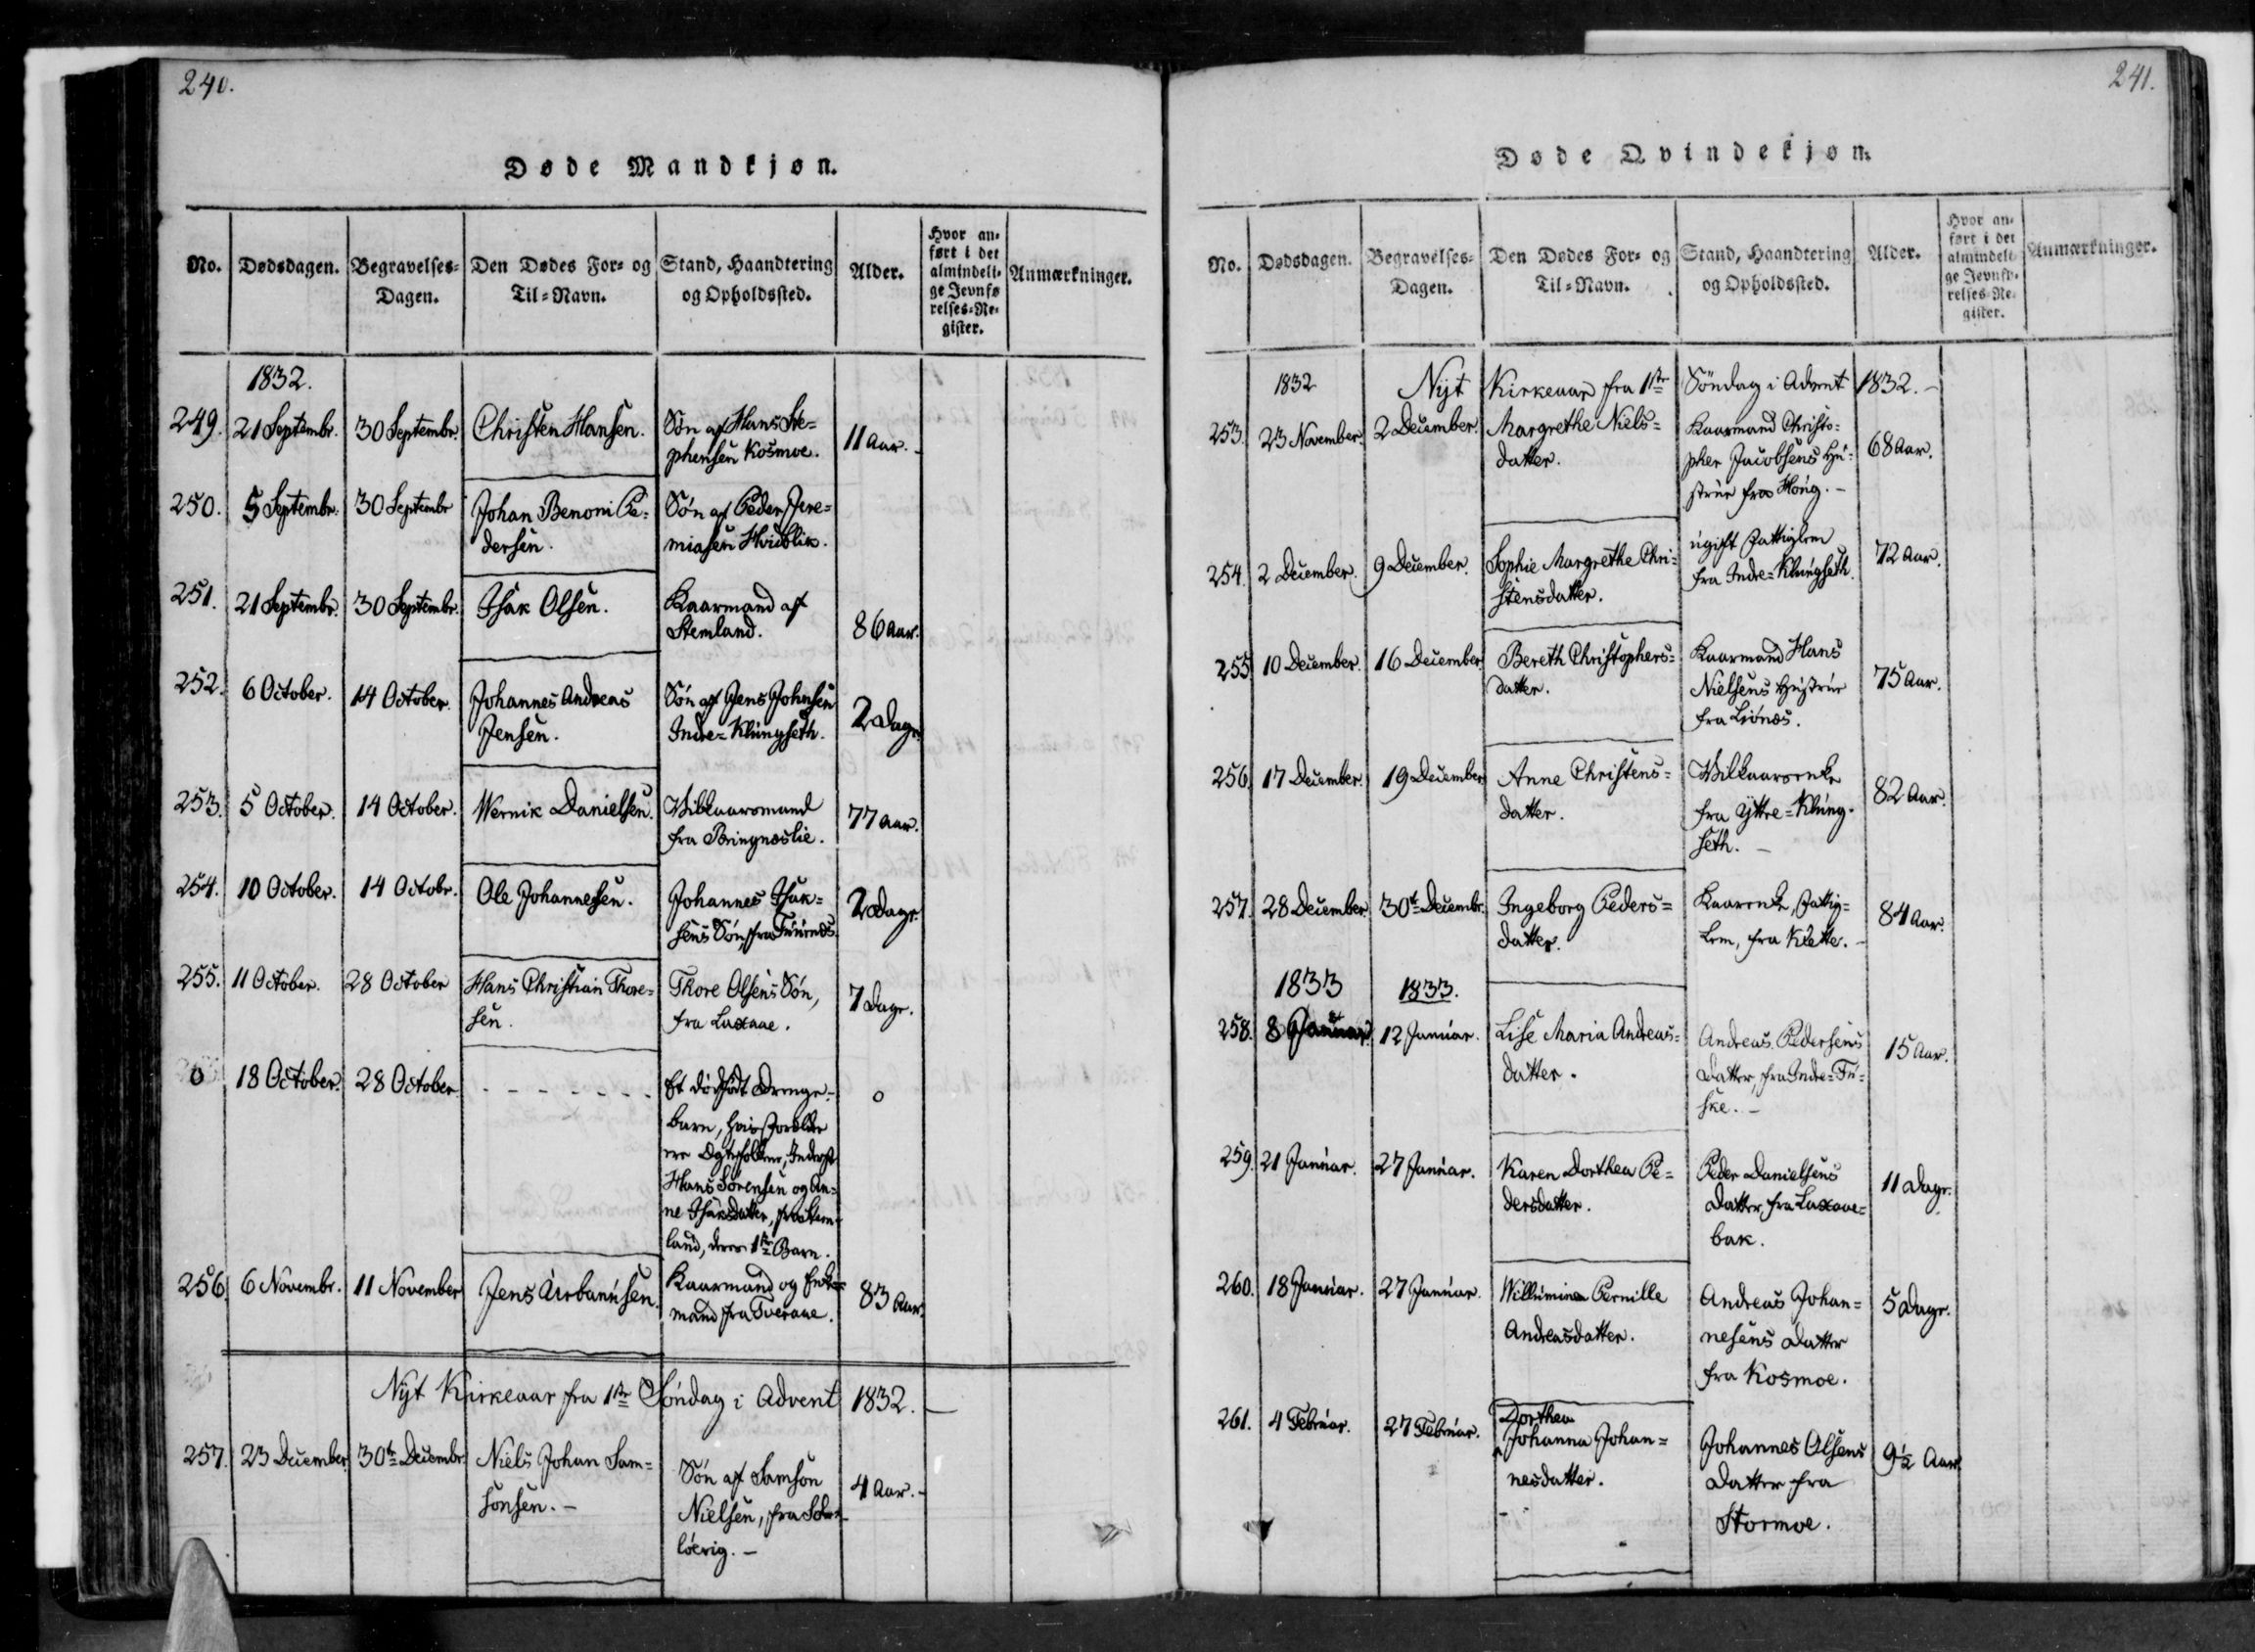 240.
Døde Mandkjøn.
No. Dødsdagen. Begravelses-Dagen. Den Dødes For- og Til-Navn. Stand, Haandtering og Opholdssted. Alder. Hvor anført i det almindelige Jevnførelses-Register. Anmærkninger.
1832.
249. 21 Septembr. 30 Septembr. Christen Hansen. Søn af Hans Ste=
phensen Kosmoe. 11 Aar.
250. 5 Septembr. 30 Septembr Johan Benoni Pe=
dersen. Søn af Peder Jere=
miasen Hvidblik.
251. 21 Septembr. 30 Septembr. Isak Olsen. Kaarmand af
Stemland. 86 Aar.
252. 6 October. 14 October. Johannes Andreas
Jensen. Søn af Jens Johnsen
Indre=Klungseth. 2 Dage.
253. 5 October. 14 October. Wernik Danielsen. Vilkaarsmand
fra Bringnæslie. 77 Aar.
254. 10 October. 14 Octobr. Ole Johannesen. Johannes Isak=
sens Søn, fra 2 Dage.
255. 11 October. 28 October Hans Christian Thore=
sen. Thore Olsens Søn,
fra Laxaae. 7 Dage.
0 18 October. 28 October - - - - - - - Et dødfødt Drenge=
barn, hvis Forældre
ere Ægtefolkene, Inderst
Hans Sørensen og An=
ne Isaksdatter, fra Stem=
land, deres 1ste Barn. 0
256. 6 Novembr. 11 November Jens Urbanusen. Kaarmand og Enke=
mand fra Tveraae. 83 Aar.
Nyt Kirkeaar fra 1ste Søndag i Advent 1832. —
257. 23 December 30te Decembr. Niels Johan Sam=
sonsen. – Søn af Samson
Nielsen, fra
løevig. – 4 Aar. -
241.
Døde Qvindekjøn.
No. Dødsdagen. Begravelses-Dagen. Den Dødes For- og Til-Navn. Stand, Haandtering og Opholdssted. Alder. Hvor anført i det almindelige Jevnførelses-Register. Anmærkninger.
1832 Nyt Kirkeaar fra 1ste Søndag i Advent 1832. –
253. 23 November. 2 December. Margrethe Niels=
datter. Kaarmand Christo=
pher Jacobsens Hu=
strue fra Houg. – 68 Aar.
254. 2 December. 9 December. Sophie Margrethe Chri=
stensdatter. ugift Fattiglem
fra Indre=Klungseth. 72 Aar.
255 10 December. 16 December Bereth Christophers=
datter. Kaarmand Hans
Nielsens Hustrue
fra Leónæs. 75 Aar.
256. 17 December. 19 December Anne Christens=
datter. Vilkaarsenke
fra Yttre=Klung=
seth. – 82 Aar.
257. 28 December. 30te Decembr. Ingeborg Peders=
datter. Kaarenke, Fattig=
lem, fra Klette. – 84 Aar.
1833 1833.
258. 8 Januar. 12 Januar. Lise Maria Andreas=
datter. Andreas Pedersens
Datter, fra Indre=Fu=
ske. – 15 Aar.
259. 21 Januar. 27 Januar. Karen Dorthea Pe=
dersdatter. Peder Danielsens
Datter, fra Laxaae=
bak. 11 Dage.
260. 18 Januar. 27 Januar. Willumine Pernille
Andreasdatter. Andreas Johan=
nesens Datter
fra Kosmoe. 5 Dage.
261. 4 Februar. 27 Februar. Dorthea
Johanna Johan=
nesdatter. Johannes Olsens
Datter fra
Stormoe. 9½ Aar